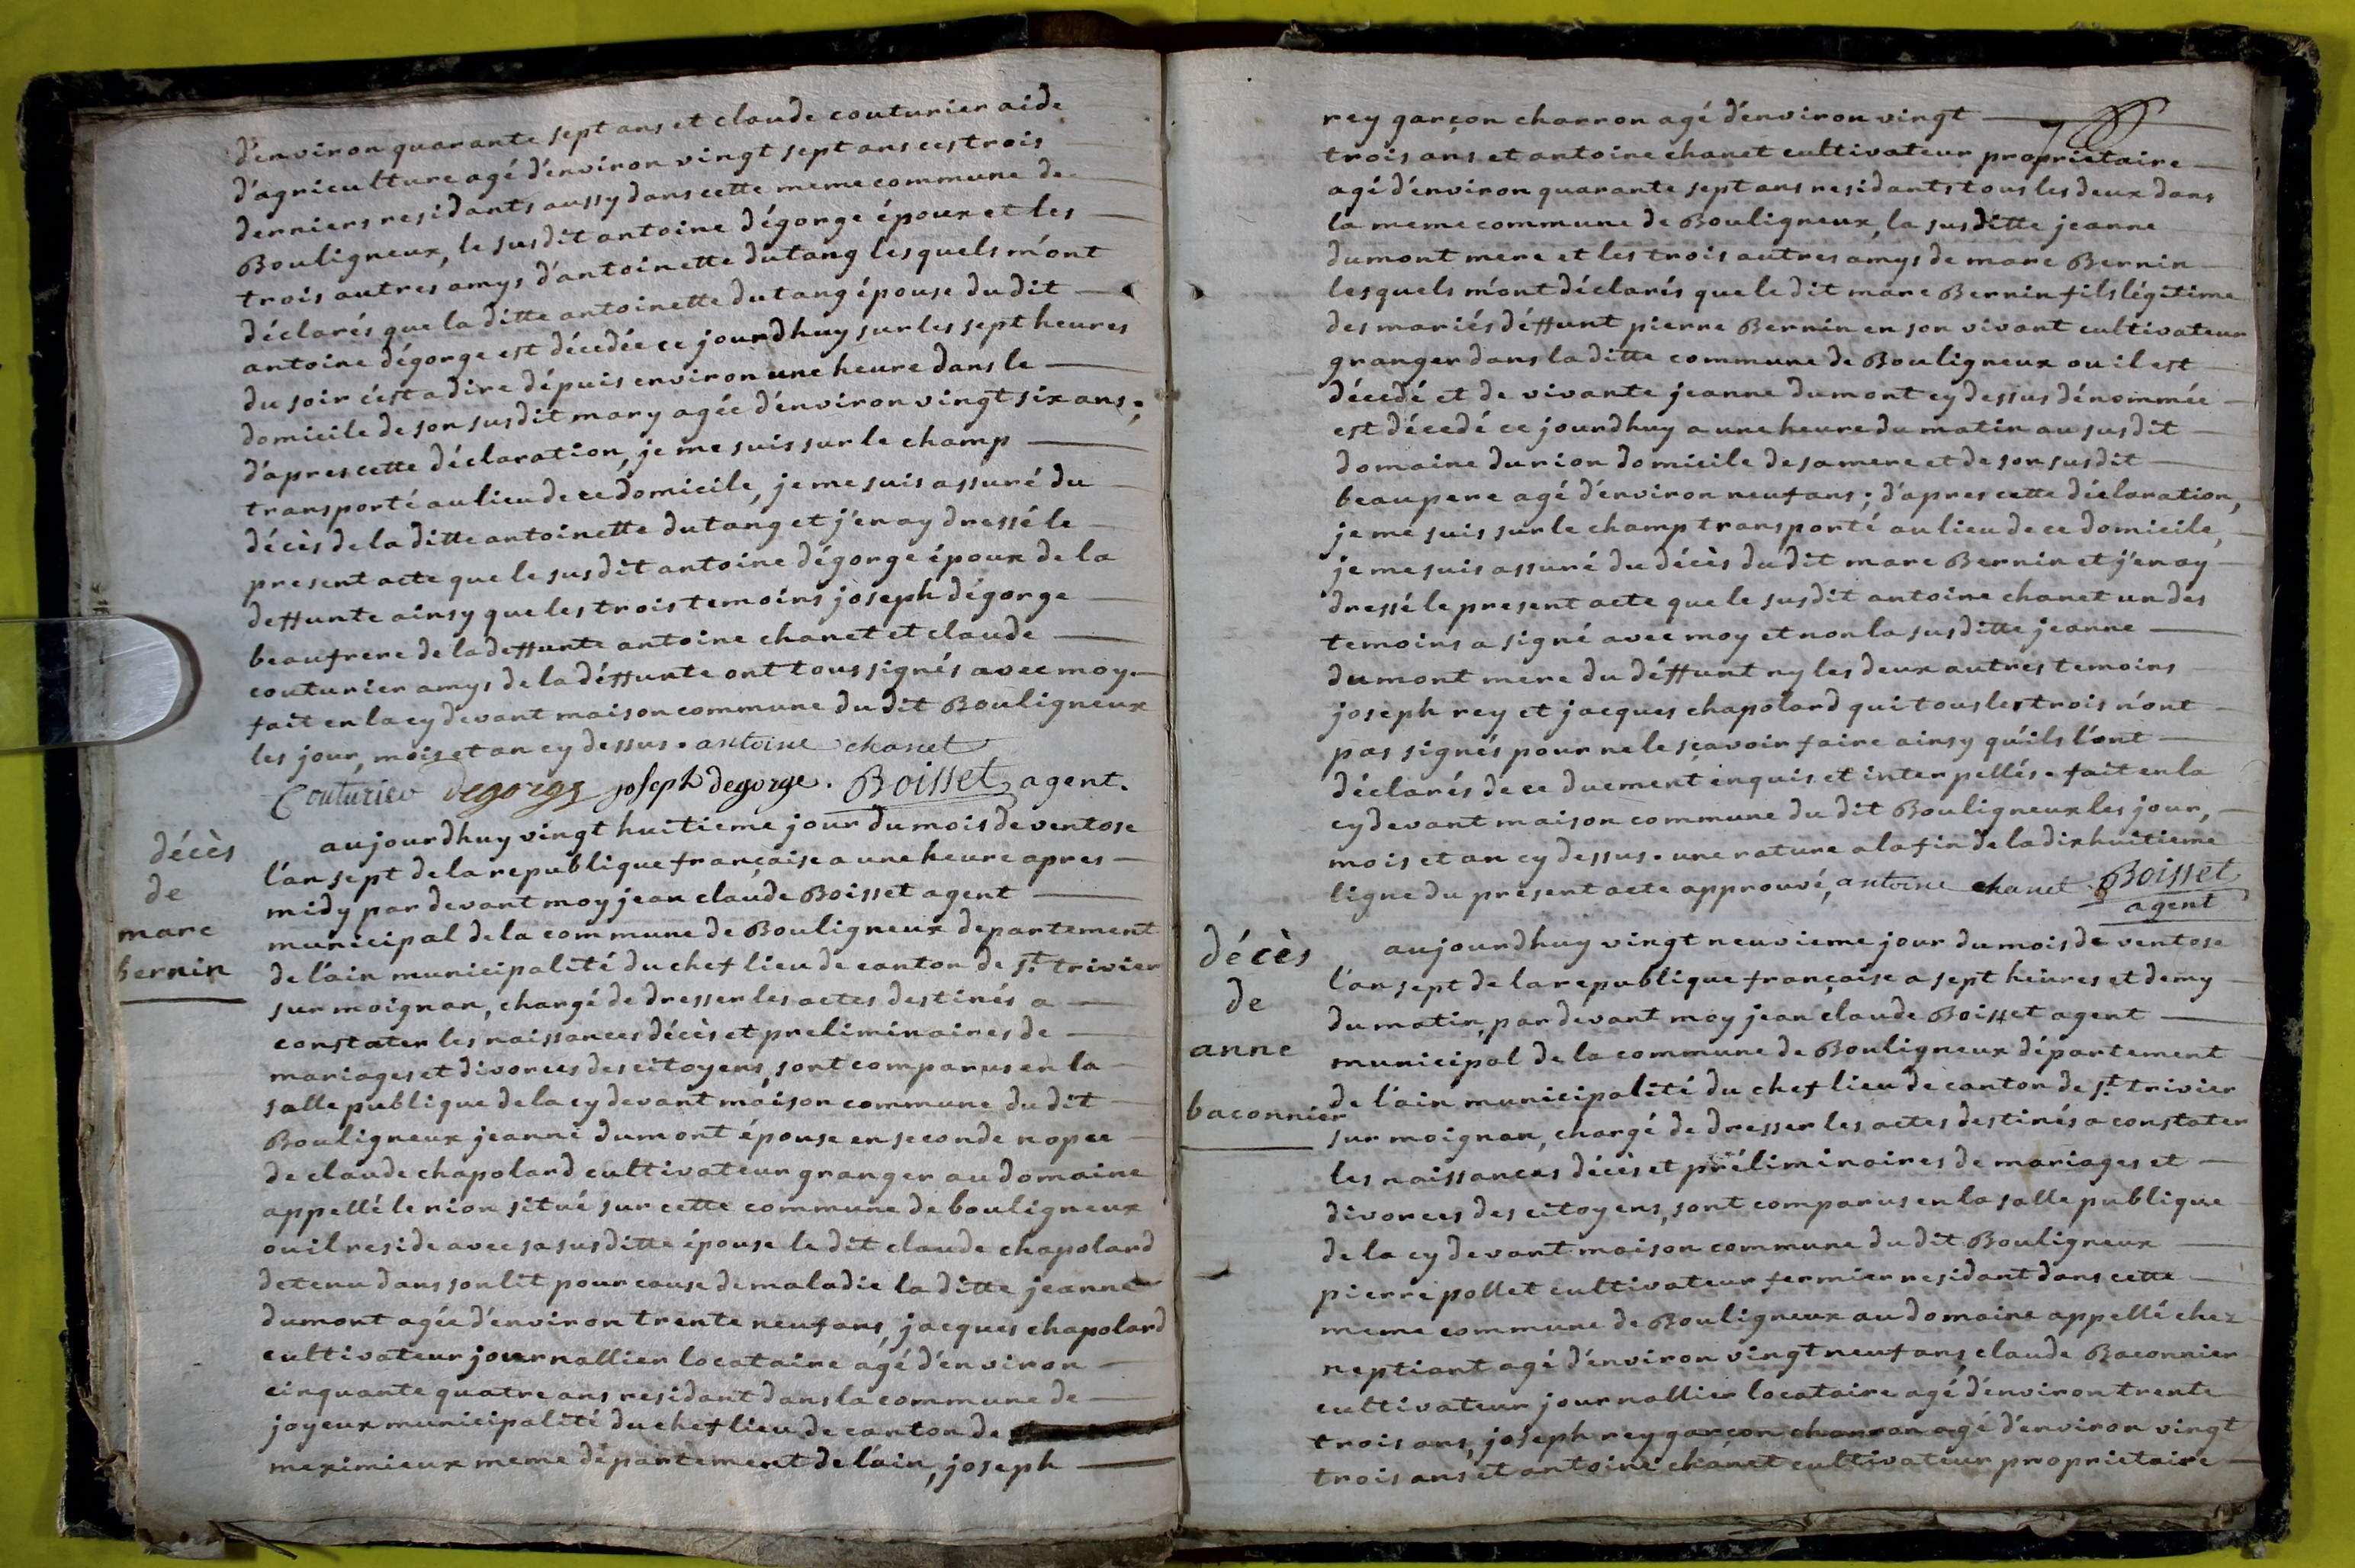 d'environ quarante sept ans et claude couturier aide
d'agriculture agé d'environ vingt sept ans ces trois
derniers residants aussy dans cette meme commune de
Bouligneux, le susdit antoine dégorge époux et les
trois autres amys d'antoinette dutang lesquels m'ont
déclarés que la ditte antoinette dutang épouse du dit
antoine dégorge est décedée ce jourdhuy sur les sept heures
du soir c'est a dire dépuis environ une heure dans le
domicile de son susdit mary agée d'environ vingt six ans;
d'apres cette déclaration, je me suis sur le champ
transporté au lieu de ce domicile, je me suis assuré du
décès de la ditte antoinette dutang et j'en ay dressé le
present acte que le susdit antoine dégorge époux de la
deffunte ainsy que les trois temoins joseph dégorge
beaufrere de la deffunte antoine chanet et claude
couturier amys de la déffunte ont tous signés avec moy.
fait en la cy devant maison commune du dit Bouligneux
les jour, mois et an cy dessus. antoine chanet
Couturier degorge joseph degorge. Boisset agent.
décès
de
marc
bernin
aujourdhuy vingt huitieme jour du mois de ventose
l'an sept de la republique française a une heure apres
midy par devant moy jean claude Boisset agent
municipal de la commune de Bouligneux departement
de l'ain municipalité du chef lieu de canton de st. trivier
sur moignan, chargé de dresser les actes destinés a
constater les naissances décès et preliminaires de
mariages et divorces des citoyens, sont comparus en la
salle publique de la cy devant maison commune du dit
Bouligneux jeanne dumont épouse en seconde nopce
de claude chapolard cultivateur granger au domaine
appellé le rion situé sur cette commune de bouligneux
ou il reside avec sa susditte épouse le dit claude chapolard
detenu dans son lit pour cause de maladie la ditte jeanne
dumont agée d'environ trente neuf ans, jacques chapolard
cultivateur journallier locataire agé d'environ
cinquante quatre ans residant dans la commune de
joyeux municipalité du chef lieu de canton de
meximieux meme département de l'ain, joseph
rey garçon charron agé d'environ vingt
trois ans et antoine chanet cultivateur proprietaire
agé d'environ quarante sept ans residants tous les deux dans
la meme commune de Bouligneux, la susditte jeanne
dumont mere et les trois autres amys de marc Bernin
lesquels m'ont déclarés que le dit marc Bernin fils légitime
des mariés déffunt pierre Bernin en son vivant cultivateur
granger dans la ditte commune de Bouligneux ou il est
décedé et de vivante jeanne dumont cy dessus dénommée
est décedé ce jourdhuy a une heure du matin au susdit
domaine du rion domicile de sa mere et de son susdit
beaupere agé d'environ neuf ans; d'apres cette déclaration,
je me suis sur le champ transporté au lieu de ce domicile,
je me suis assuré du décès du dit marc Bernin et j'en ay
dressé le present acte que le susdit antoine chanet un des
temoins a signé avec moy et non la susditte jeanne
dumont mere du déffunt ny les deux autres temoins
joseph rey et jacques chapolard qui tous les trois n'ont
pas signés pour ne le sçavoir faire ainsy qu'ils l'ont
déclarés de ce duement enquis et interpellés. fait en la
cy devant maison commune du dit Bouligneux les jour,
mois et an cy dessus. une rature a la fin de la dixhuitieme
ligne du présent acte approuvé, antoine chanet Boisset
agent
décès
de
anne
baconnier
aujourdhuy vingt neuvieme jour du mois de ventose
l'an sept de la republique française a sept heures et demy
du matin, par devant moy jean claude Boisset agent
municipal de la commune de Bouligneux département
de l'ain municipalité du chef lieu de canton de st. trivier
sur moignan, chargé de dresser les actes destinés a constater
les naissances décès et préliminaires de mariages et
divorces des citoyens, sont comparus en la salle publique
de la cy devant maison commune du dit Bouligneux
pierre pollet cultivateur fermier residant dans cette
meme commune de Bouligneux au domaine appellé chez
neptiant agé d'environ vingt neuf ans, claude Baconnier
cultivateur journallier locataire agé d'environ trente
trois ans, joseph rey garçon charron agé d'environ vingt
trois ans et antoine chanet cultivateur proprietaire